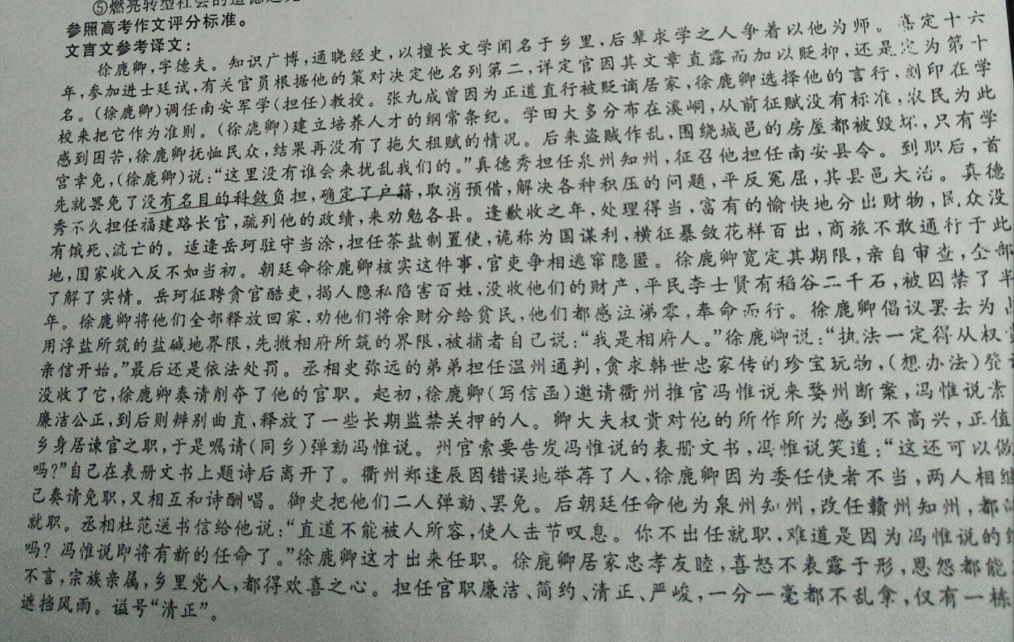 ⑤燃亮转型社会的道德之光
参照高考作文评分标准。
文言文参考译文：
徐鹿卿，字德夫。知识广博，通晓经史，以擅长文学闻名于乡里，后辈求学之人争着以他为师。嘉定十六
年，参加进士廷试，有关官员根据他的策对决定他名列第二，详定官因其文章直露而加以贬抑，还是定为第十
名。（徐鹿卿）调任南安军学（担任）教授。张九成曾因为正道直行被贬谪居家，徐鹿卿选择他的言行，刻印在学
校来把它作为准则。（徐鹿卿）建立培养人才的纲常条纪。学田大多分布在溪峒，从前征赋没有标准，农民为此
感到困苦，徐鹿卿抚恤民众，结果再没有了拖欠租赋的情况。后来盗贼作乱，围绕城邑的房屋都被毁坏，只有学
宫幸免，（徐鹿卿）说：“这里没有谁会来扰乱我们的。”真德秀担任泉州知州，征召他担任南安县令。到职后，首
先就罢免了没有名目的科敛负担，确定了户籍，取消预借，解决各种积压的问题，平反冤屈，其县邑大治。真德
秀不久担任福建路长官，疏列他的政绩，来劝勉各县。逢歉收之年，处理得当，富有的愉快地分出财物，民众没
有饿死、流亡的。适逢岳珂驻守当涂，担任茶盐制置使，诡称为国谋利，横征暴敛花样百出，商旅不敢通行于此
地，国家收入反不如当初。朝廷命徐鹿卿核实这件事，官吏争相逃窜隐匿。徐鹿卿宽定其期限，亲自审查，全部
了解了实情。岳珂征聘贪官酷吏，揭人隐私陷害百姓，没收他们的财产，平民李士贤有稻谷二千石，被囚禁了半
年。徐鹿卿将他们全部释放回家，劝他们将余财分给贫民，他们都感泣涕零，奉命而行。徐鹿卿倡议罢去为
用浮盐所筑的盐碱地界限，先撤相府所筑的界限，被捕者自己说：“我是相府人。”徐鹿卿说：“执法一定得从权
亲信开始。”最后还是依法处罚。丞相史弥远的弟弟担任温州通判，贪求韩世忠家传的珍宝玩物，（想办法）登
没收了它，徐鹿卿奏请削夺了他的官职。起初，徐鹿卿（写信函）邀请衢州推官冯惟说来婺州断案，冯惟说素
廉洁公正，到后则辨别曲直，释放了一些长期监禁关押的人。卿大夫权贵对他的所作所为感到不高兴，正值
乡身居谏官之职，于是嘱请（同乡）弹劾冯惟说。州官索要告发冯惟说的表册文书，冯惟说笑道：“这还可以做
吗？”自己在表册文书上题诗后离开了。衢州郑逢辰因错误地举荐了人，徐鹿卿因为委任使者不当，两人相继
己奏请免职，又相互和诗酬唱。御史把他们二人弹劾、罢免。后朝廷任命他为泉州知州，改任赣州知州，都
就职。丞相杜范送书信给他说：“直道不能被人所容，使人击节叹息。你不出任就职，难道是因为冯惟说的
吗？冯惟说即将有新的任命了。”徐鹿卿这才出来任职。徐鹿卿居家忠孝友睦，喜怒不表露于形，恩怨都能
不言，宗族亲属，乡里党人，都得欢喜之心。担任官职廉洁、简约、清正、严峻，一分一毫都不乱拿，仅有一栋
遮挡风雨。谥号“清正”。